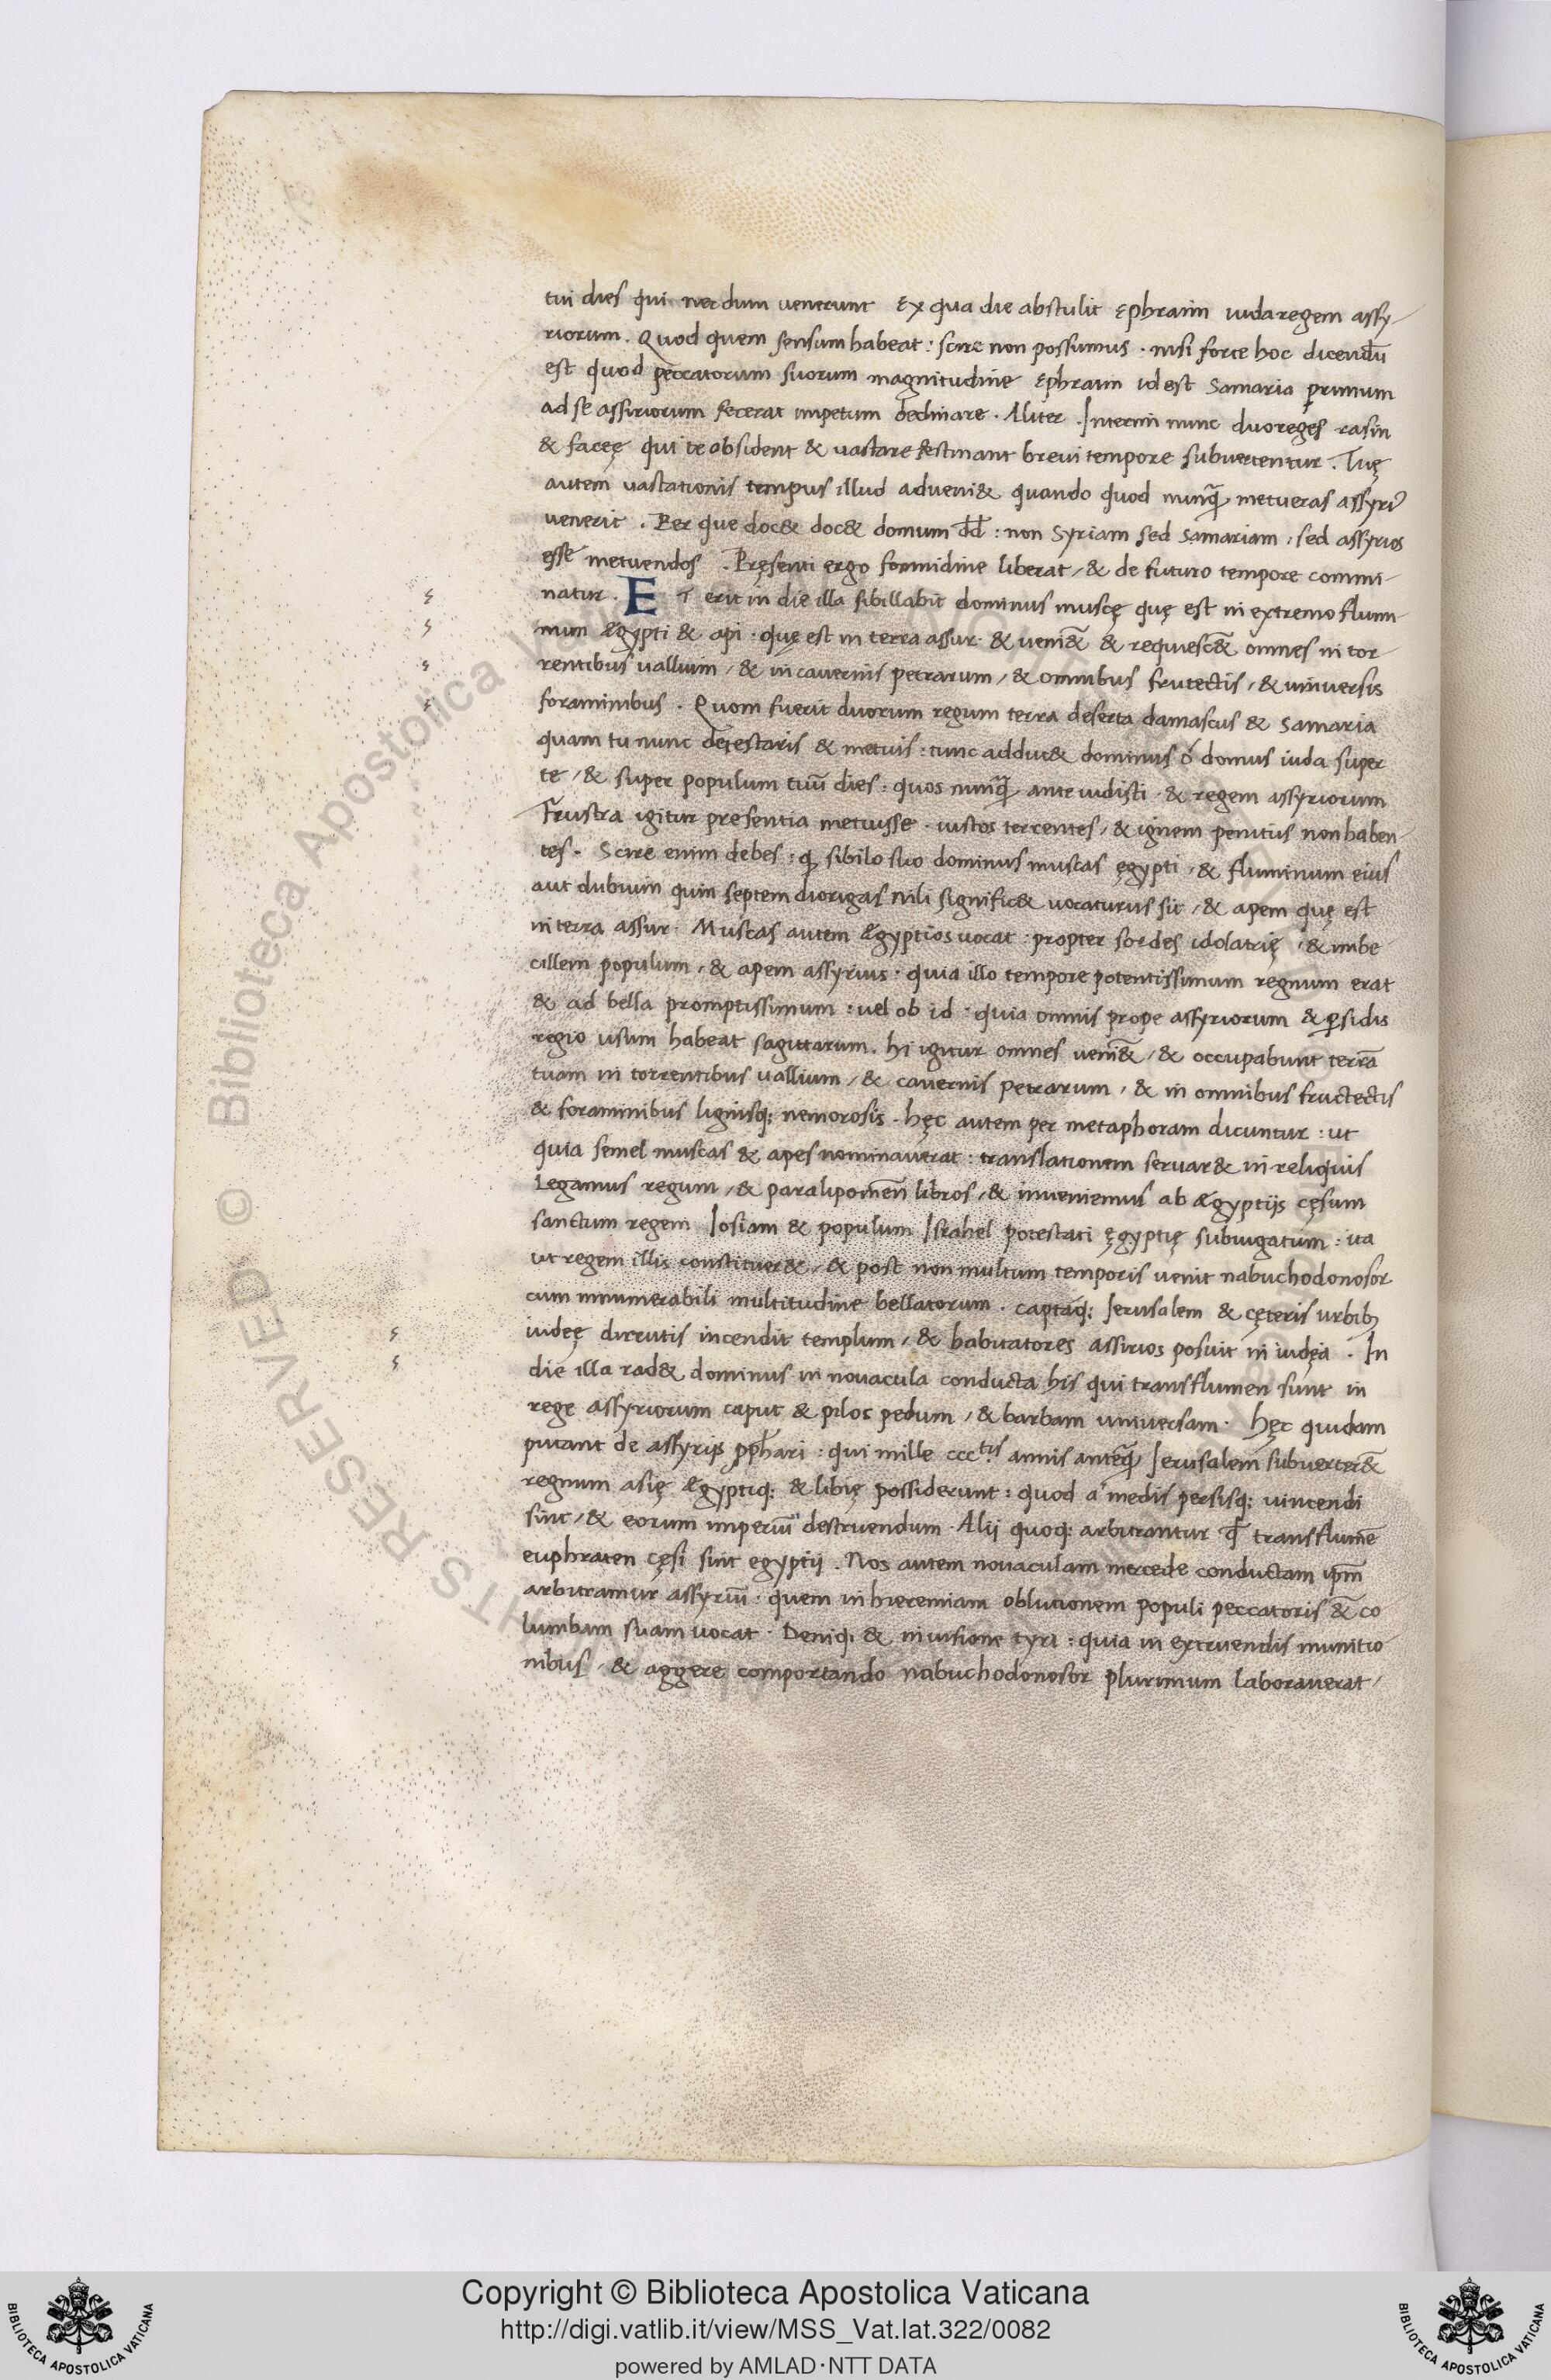 tui dies qui necdum venerunt Ex qua die abstulit ęphraim iuda regem assy-
riorum. Quod quem sensum habeat: scire non possumus. nisi forte hoc dicendū
est quod peccatorum suorum magnitudine ęphraim id est Samaria primum
ad se assiriorum fecerat impetum declinare. Aliter. Interim nunc duo reges rasin
& faceę qui te obsident & vastare festinant brevi tempore subvertentur. Tuę
autem vastationis tempus illud adveni& quando quod nunq̄ metueras assyri
venerit. Per que doc& doc& domum dd̄: non Syriam sed Samariam, sed assyrios
esse metuendos. Pręsenti ergo formidine liberat, & de futuro tempore commi-
natur. ET erit in die illa sibillabit dominus muscę quę est in extremo flumi
num ægypti & api. quę est in terra assur. & veni&̄ & requiesc&̄ omnes in tor-
rentibus vallium, & in cavernis petrarum, & omnibus frutectis, & universis
foraminibus. Quom fuerit duorum regum terra deserta damascus & Samaria
quam tu nunc detestaris & metuis: tunc adduc& dominus ó domus iuda super
te, & super populum tuū dies: quos nunq̄ ante vidisti. & regem assyriorum
Frustra igitur presentia metuisse. iustos terrentes, & ignem penitus non haben-
tes. Scire enim debes: q sibilo suo dominus muscas ęgypti, & fluminum eius
aut dubium quin septem diorigas nili signific& vocaturus sit, & apem quę est
in terra assur. Muscas autem ægyptios vocat: propter sordes idolatrię, & imbe
cillem populum, & apem assyrius: quia illo tempore potentissimum regnum erat
& ad bella promptissimum: vel ob id: quia omnis prope assyriorum & ꝑsidis
regio usum habeat sagittarum. hi igitur omnes veni&̄, & occupabunt terrā
tuam in torrentibus vallium, & cavernis petrarum, & in omnibus fructectis
& foraminibus lignisq; nemorosis. hęc autem per metaphoram dicuntur: ut
quia semel muscas & apes nominaverat: translationem servar& in reliquis
Legamus regum, & paralipomēn libros, & inveniemus ab ægyptijs cęsum
sanctum regem Iosiam & populum Israhel potestati ęgyptię subiugatum: ita
ut regem illis constituer&, & post non multum temporis venit nabuchodonosor
cum innumerabili multitudine bellatorum. captaq; Ierusalem & cęteris urbib;
iudeę dirrutis incendit templum, & habitatores assirios posuit in iudęa. In
die illa rad& dominus in novacula conducta his qui trans flumen sunt in
rege assyriorum caput & pilos pedum, & barbam universam. Hęc quidam
putant de assyrijs ꝓph̄ari: qui mille ccc.tis annis anteq̄ Ierusalem subverter&̄
regnum asię ægyptiq; & libię possiderunt: quod a medis persisq; vincendi
sint, & eorum imperiū destruendum. Alij quoq; arbitrantur q̄ trans flumē
euphraten cęsi sint egyptij. Nos autem novaculam mercede conductam ip̄m
arbitramur assyriū: quem in hieremiam oblutionem populi peccatoris &̄ co
lumbam suam vocat. Deniq; & in visione tyri: quia in extruendis munitio
nibus, & aggere comportando nabuchodonosor plurimum laboraverat,
© Biblioteca Apostolica Vaticana
RIGHTS RESERVED
Copyright © Biblioteca Apostolica Vaticana
http://digi.vatlib.it/view/MSS_Vat.lat.322/0082
powered by AMLAD·NTT DATA
BIBLIOTECA APOSTOLICA VATICANA
BIBLIOTECA APOSTOLICA VATICANA